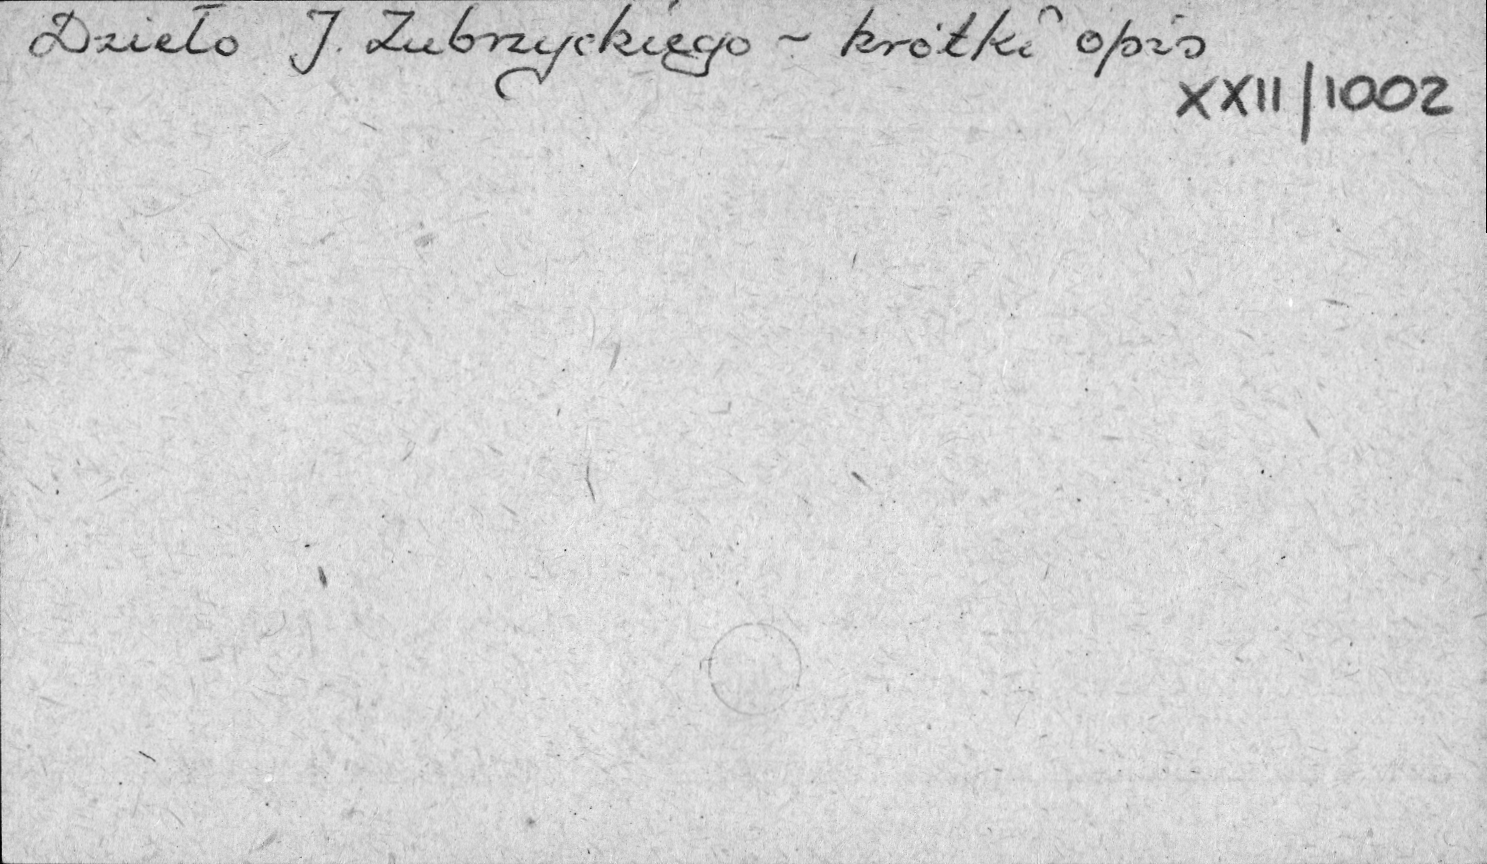 Dzieło J. Zubrzyckiego - krótki opis
XXII/1002